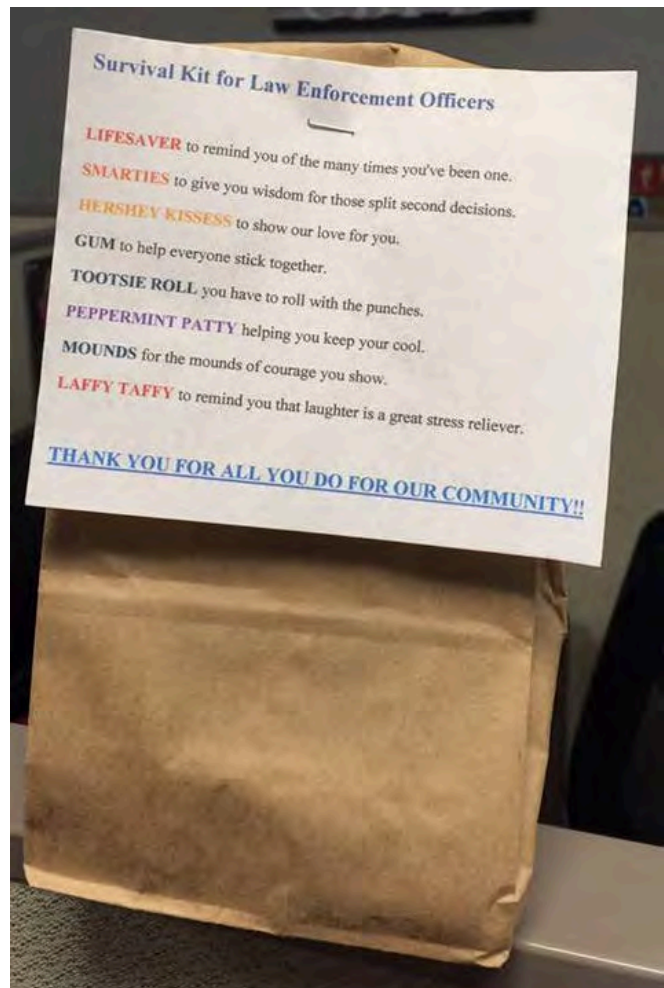 Survival Kit for Law Enforcement Officers
LIFESAVER to remind you of the many times you've been one.
SMARTIES to give you wisdom for those split second decisions.
HERSHEY KISSESS to show our love for you.
GUM to help everyone stick together.
TOOTSIE ROLL you have to roll with the punches.
PEPPERMINT PATTY helping you keep your cool.
MOUNDS for the mounds of courage you show.
LAFFY TAFFY to remind you that laughter is a great stress reliever.
THANK YOU FOR ALL YOU DO FOR OUR COMMUNITY!!